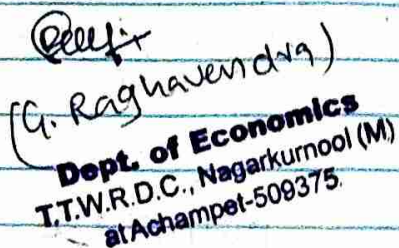 (G. Raghavendra)
Dept. of Economics
T.T.W.R.D.C., Nagarkurnool (M)
at Achampet-509375.